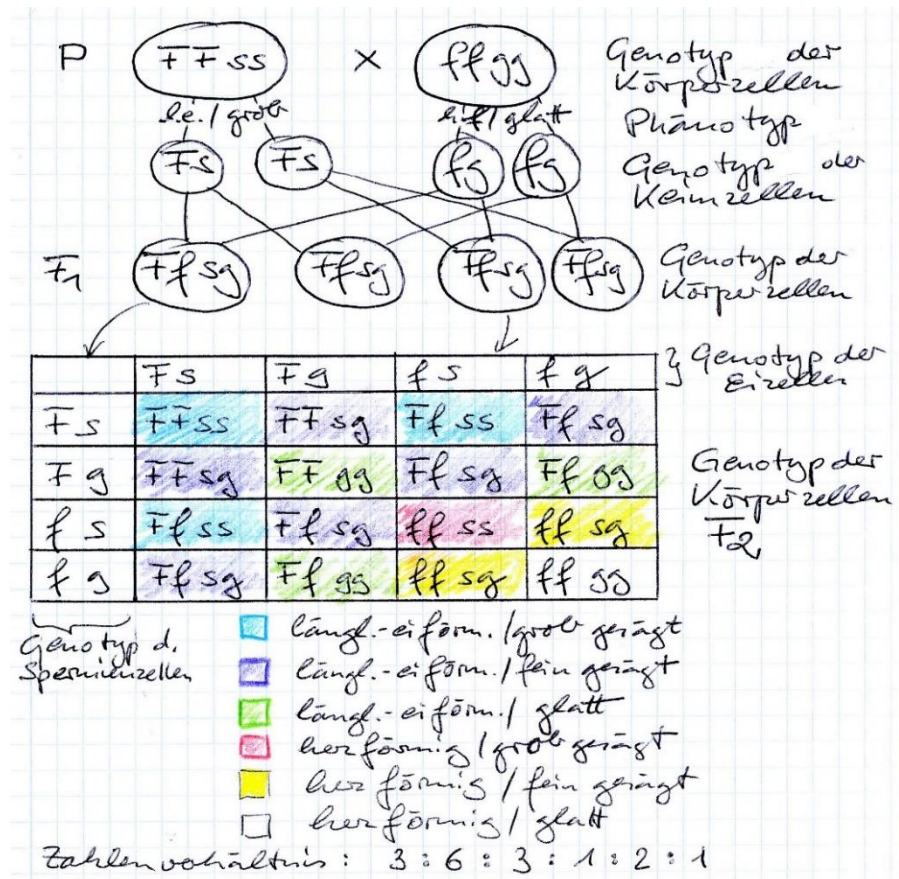 P FFss × ffgg Genotyp der
Körperzellen
l.e./grob hzf/glatt Phänotyp
Fs Fs fg fg Genotyp der
Keimzellen
F1 Ffsg Ffsg Ffsg Ffsg Genotyp der
Körperzellen
Fs Fg fs fg } Genotyp der
Eizellen
Fs FFss FFsg Ffss Ffsg
Fg FFsg FFgg Ffsg Ffgg Genotyp der
Körperzellen
fs Ffss Ffsg ffss ffsg F2
fg Ffsg Ffgg ffsg ffgg
Genotyp d.
Spermienzellen
längl.-eiförm./grob gesägt
längl.-eiförm./fein gesägt
längl.-eiförm./glatt
herzförmig/grob gesägt
herzförmig/fein gesägt
herzförmig/glatt
Zahlenverhältnis: 3:6:3:1:2:1